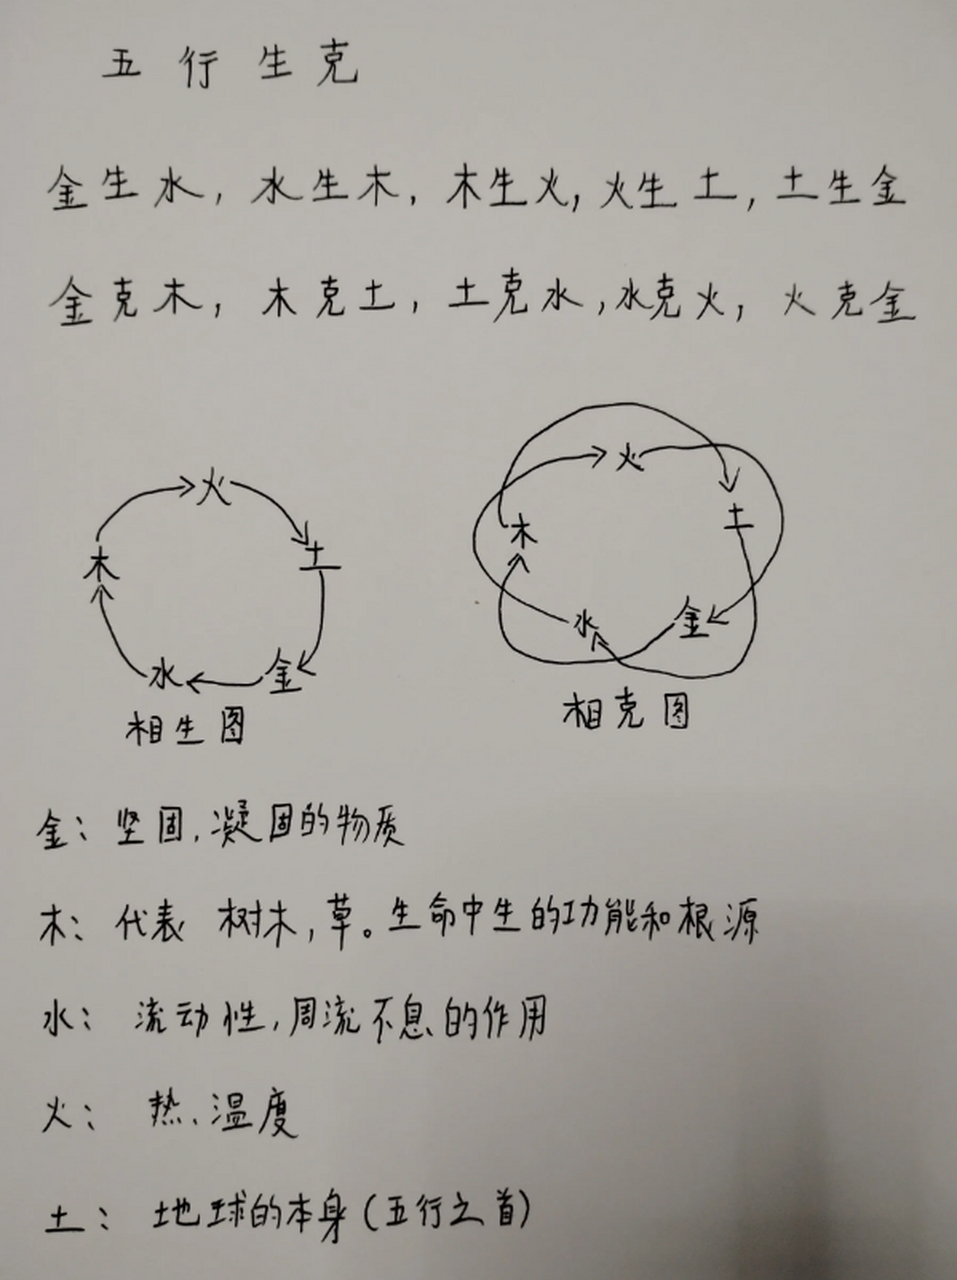 五行生克
金生水，水生木，木生火，火生土，土生金
金克木，木克土，土克水，水克火，火克金
火
木
土
水
金
相生图
火
木
土
水
金
相克图
金：坚固，凝固的物质
木：代表 树木，草。生命中生的功能和根源
水：流动性，周流不息的作用
火：热、温度
土：地球的本身（五行之首）